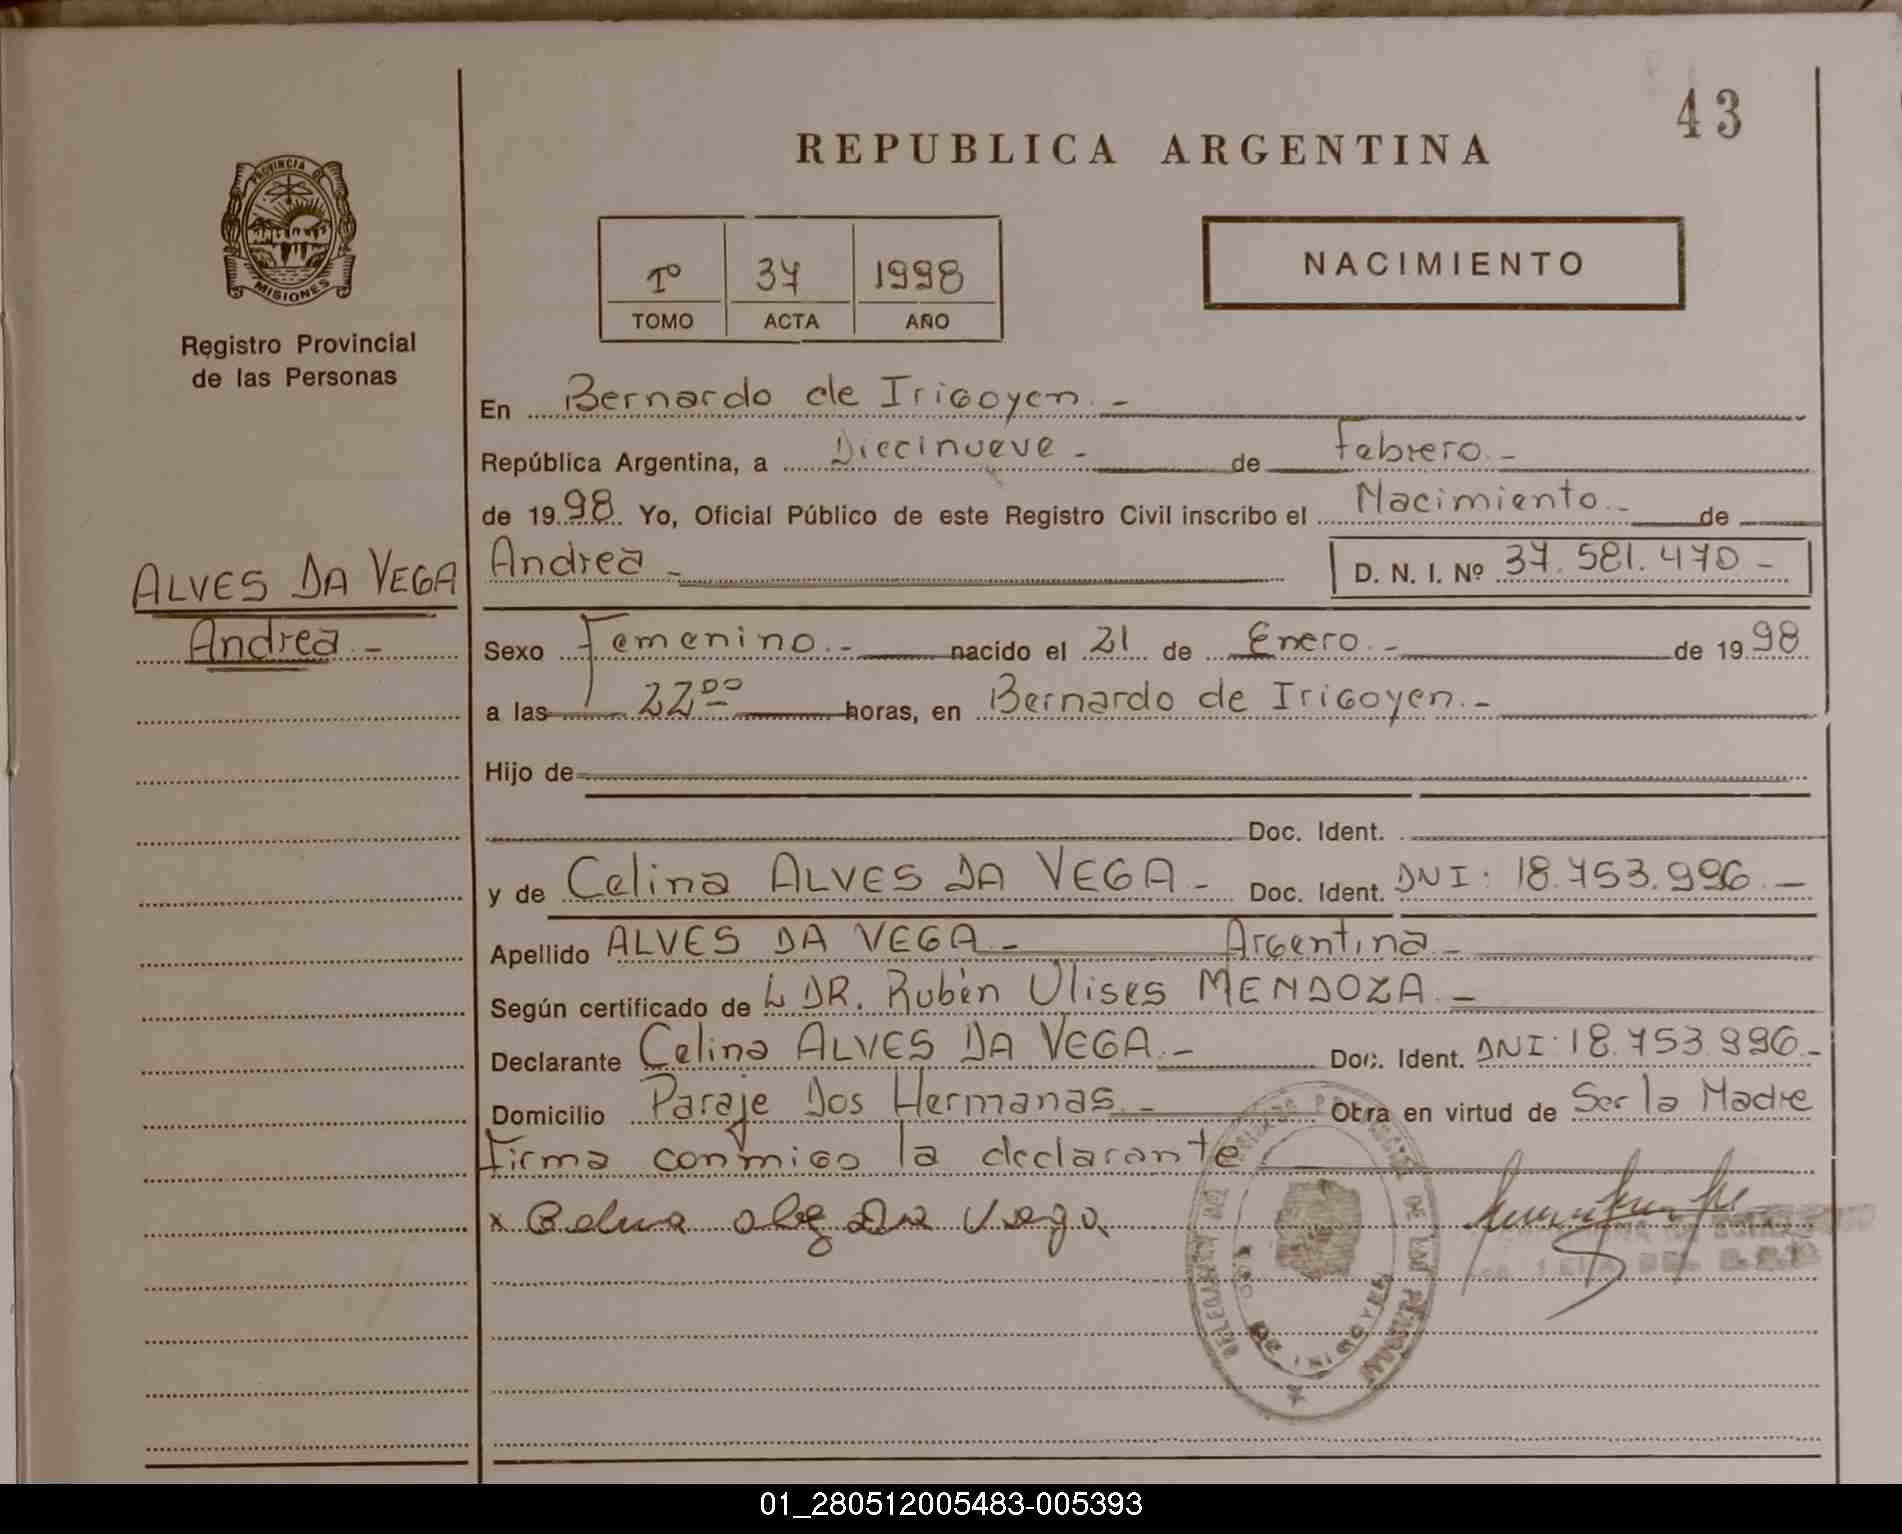 43
REPUBLICA ARGENTINA
PROVINCIA DE
MISIONES
Registro Provincial
de las Personas
1º 37 1998
TOMO ACTA AÑO
NACIMIENTO
En Bernardo de Irigoyen.-
República Argentina, a Diecinueve - de Febrero.-
de 1998 Yo, Oficial Público de este Registro Civil inscribo el Nacimiento.- de
ALVES DA VEGA
Andrea.-
Andrea - D. N. I. Nº 37.581.470 -
Sexo Femenino.- nacido el 21 de Enero.- de 1998
a las 22⁰⁰ horas, en Bernardo de Irigoyen.-
Hijo de
Doc. Ident.
y de Celina ALVES DA VEGA - Doc. Ident. DNI: 18.753.996.-
Apellido ALVES DA VEGA.- Argentina -
Según certificado de DR. Rubén Ulises MENDOZA.-
Declarante Celina ALVES DA VEGA.- Doc. Ident. DNI: 18.753.996.-
Domicilio Paraje Dos Hermanas.- Obra en virtud de Ser la Madre
Firma conmigo la declarante
x
DE IRIGOYEN
01_280512005483-005393